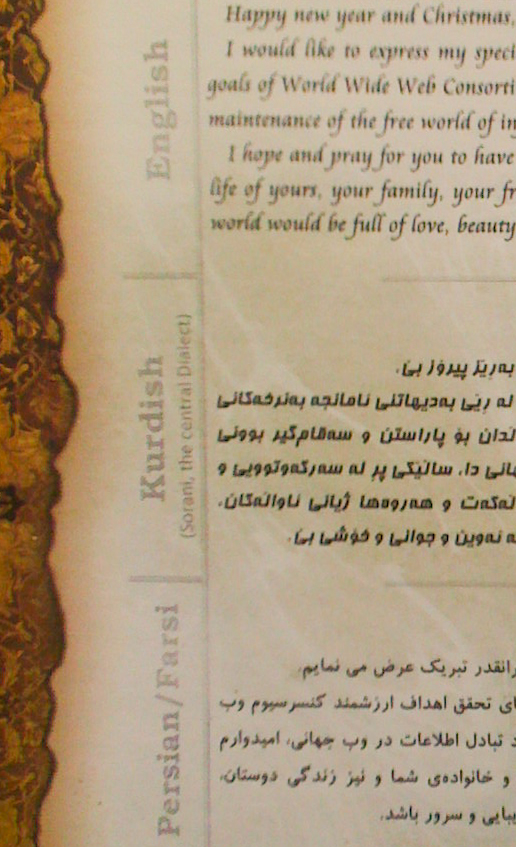 English
Happy new year and Christmas,
I would like to express my speci
goals of World Wide Web Consorti
maintenance of the free world of in
I hope and pray for you to have
life of yours, your family, your fr
world would be full of love, beauty
Kurdish
(Sorani, the central Dialect)
بەڕێز پیرۆز بێ.
لە ڕێی بەدیهاتنی ئامانجە بەنرخەکانی
لدان بۆ پاراستن و سەقامگیر بوونی
هانی دا، ساڵێکی پڕ لە سەرکەوتوویی و
ڵەکەت و هەروەها ژیانی ئاواڵەکان،
ە ئەوین و جوانی و خۆشی بێ.
Persian/Farsi
رانقدر تبریک عرض می نمایم.
ای تحقق اهداف ارزشمند کنسرسیوم وب
د تبادل اطلاعات در وب جهانی، امیدوارم
و خانواده‌ی شما و نیز زندگی دوستان،
یبایی و سرور باشد.